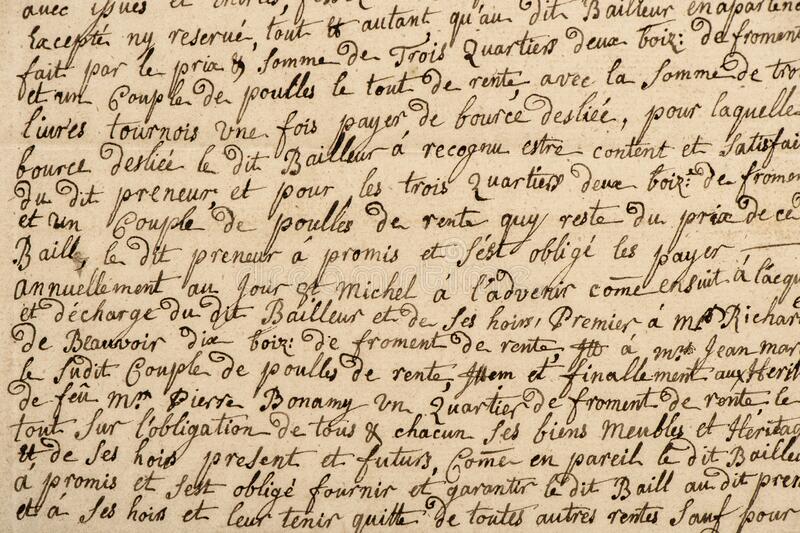 avec issues et
Excepté ny reservé, tout & autant qu'au dit Bailleur en aparten
fait par le prix & Somme de Trois Quartiers deux boiz: de froment
et un Couple de poulles le tout de rente, avec la Somme de tro
livres tournois vne fois payer de bource desliée, pour laquelle
bource desliée le dit Bailleur á recognu estre content et Satisfai
du dit preneur, et pour les trois Quartiers deux boiz: de frome
et un Couple de poulles de rente quy reste du prix de ce
Baill, le dit preneur á promis et s'ést obligé les payer
annuellement au Jour st Michel á l'advenir come ensuit á l'acqu
et décharge du dit Bailleur et de Ses hoirs, Premier á Richar
de Beauvoir dix boiz: de froment de rente, á Jean mar
le Sudit Couple de poulles de rente, Item et finallement aux Herit
de feû mr. Pierre Bonamy un Quartier de froment de rente le
tout Sur l'obligation de tous & chacun Ses biens Meubles et Héritag
et de Ses hoirs present et futurs, Come en pareil le dit Bailleu
á promis et s'est obligé fournir et garantir le dit Baill au dit pren
et á Ses hoirs et leur tenir quitte de toutes autres rentes Sauf pour